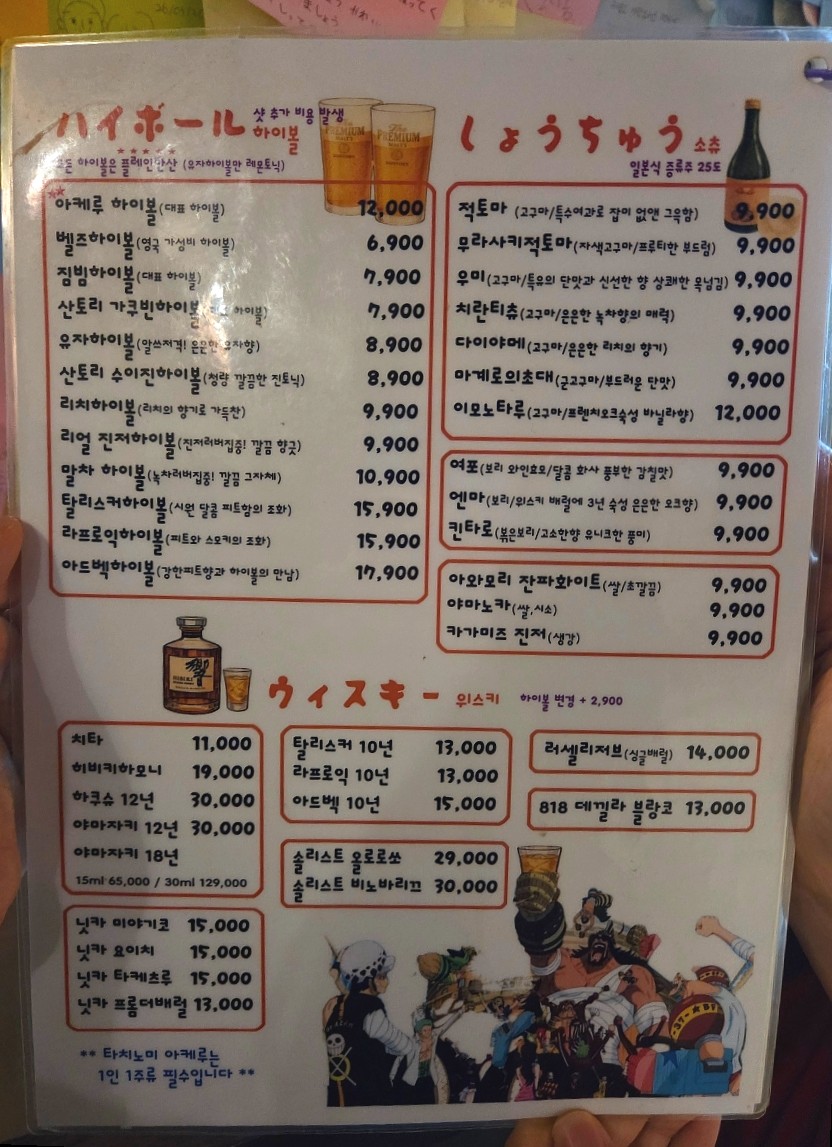 ハイボール 하이볼
샷 추가 비용 발생
하이볼은 플레인탄산 (유자하이볼만 레몬토닉)
아케루 하이볼(대표 하이볼) 12,000
벨즈하이볼(영국 가성비 하이볼) 6,900
짐빔하이볼(대표 하이볼) 7,900
산토리 가쿠빈하이볼( 하이볼) 7,900
유자하이볼(알쓰저격! 은은한 유자향) 8,900
산토리 수이진하이볼(청량 깔끔한 진토닉) 8,900
리치하이볼(리치의 향기로 가득찬) 9,900
리얼 진저하이볼(진저러버집중! 깔끔 향긋) 9,900
말차 하이볼(녹차러버집중! 깔끔 그자체) 10,900
탈리스커하이볼(시원 달콤 피트함의 조화) 15,900
라프로익하이볼(피트와 스모키의 조화) 15,900
아드벡하이볼(강한피트향과 하이볼의 만남) 17,900
しょうちゅう 소츄
일본식 증류주 25도
적토마 (고구마/특수여과로 잡미 없앤 그윽함) 9,900
무라사키적토마(자색고구마/프루티한 부드럼) 9,900
우미(고구마/특유의 단맛과 신선한 향 상쾌한 목넘김) 9,900
치란티츄(고구마/은은한 녹차향의 매력) 9,900
다이야메(고구마/은은한 리치의 향기) 9,900
마계로의초대(군고구마/부드러운 단맛) 9,900
이모노타루(고구마/프렌치오크숙성 바닐라향) 12,000
여포(보리 와인효모/달콤 화사 풍부한 감칠맛) 9,900
엔마(보리/위스키 배럴에 3년 숙성 은은한 오크향) 9,900
킨타로(볶은보리/고소한향 유니크한 풍미) 9,900
아와모리 잔파화이트(쌀/초깔끔) 9,900
야마노카(쌀,시소) 9,900
카가미즈 진저(생강) 9,900
ウィスキー 위스키 하이볼 변경 + 2,900
치타 11,000
히비키하모니 19,000
하쿠슈 12년 30,000
야마자키 12년 30,000
야마자키 18년
15ml 65,000 / 30ml 129,000
닛카 미야기쿄 15,000
닛카 요이치 15,000
닛카 타케츠루 15,000
닛카 프롬더배럴 13,000
탈리스커 10년 13,000
라프로익 10년 13,000
아드벡 10년 15,000
솔리스트 올로로쏘 29,000
솔리스트 비노바리끄 30,000
러셀리저브(싱글배럴) 14,000
818 데낄라 블랑코 13,000
** 타치노미 아케루는
1인 1주류 필수입니다 **